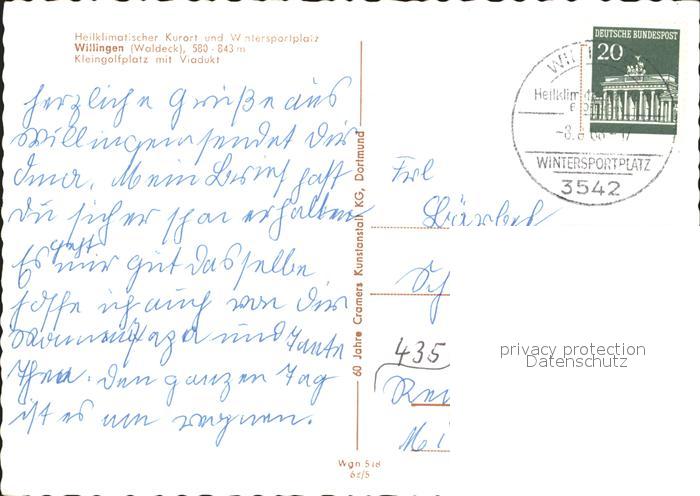 Heilklimatischer Kurort und Wintersportplatz
Willingen (Waldeck), 580 - 843 m
Kleingolfplatz mit Viadukt
herzliche Grüße aus
Willingen sendet Dir
Oma. Mein Brief hast
Du sicher schon erhalten
Es geht mir gut dasselbe
hoffe ich auch von Dir
und Tante
Thea. Den ganzen Tag
ist es am regnen.
60 Jahre Cramers Kunstanstalt KG, Dortmund
Wgn 518
62/5
DEUTSCHE BUNDESPOST
20
WINTERSPORTPLATZ
3542
Frl
Bärbel
Sch
435
privacy protection
Datenschutz